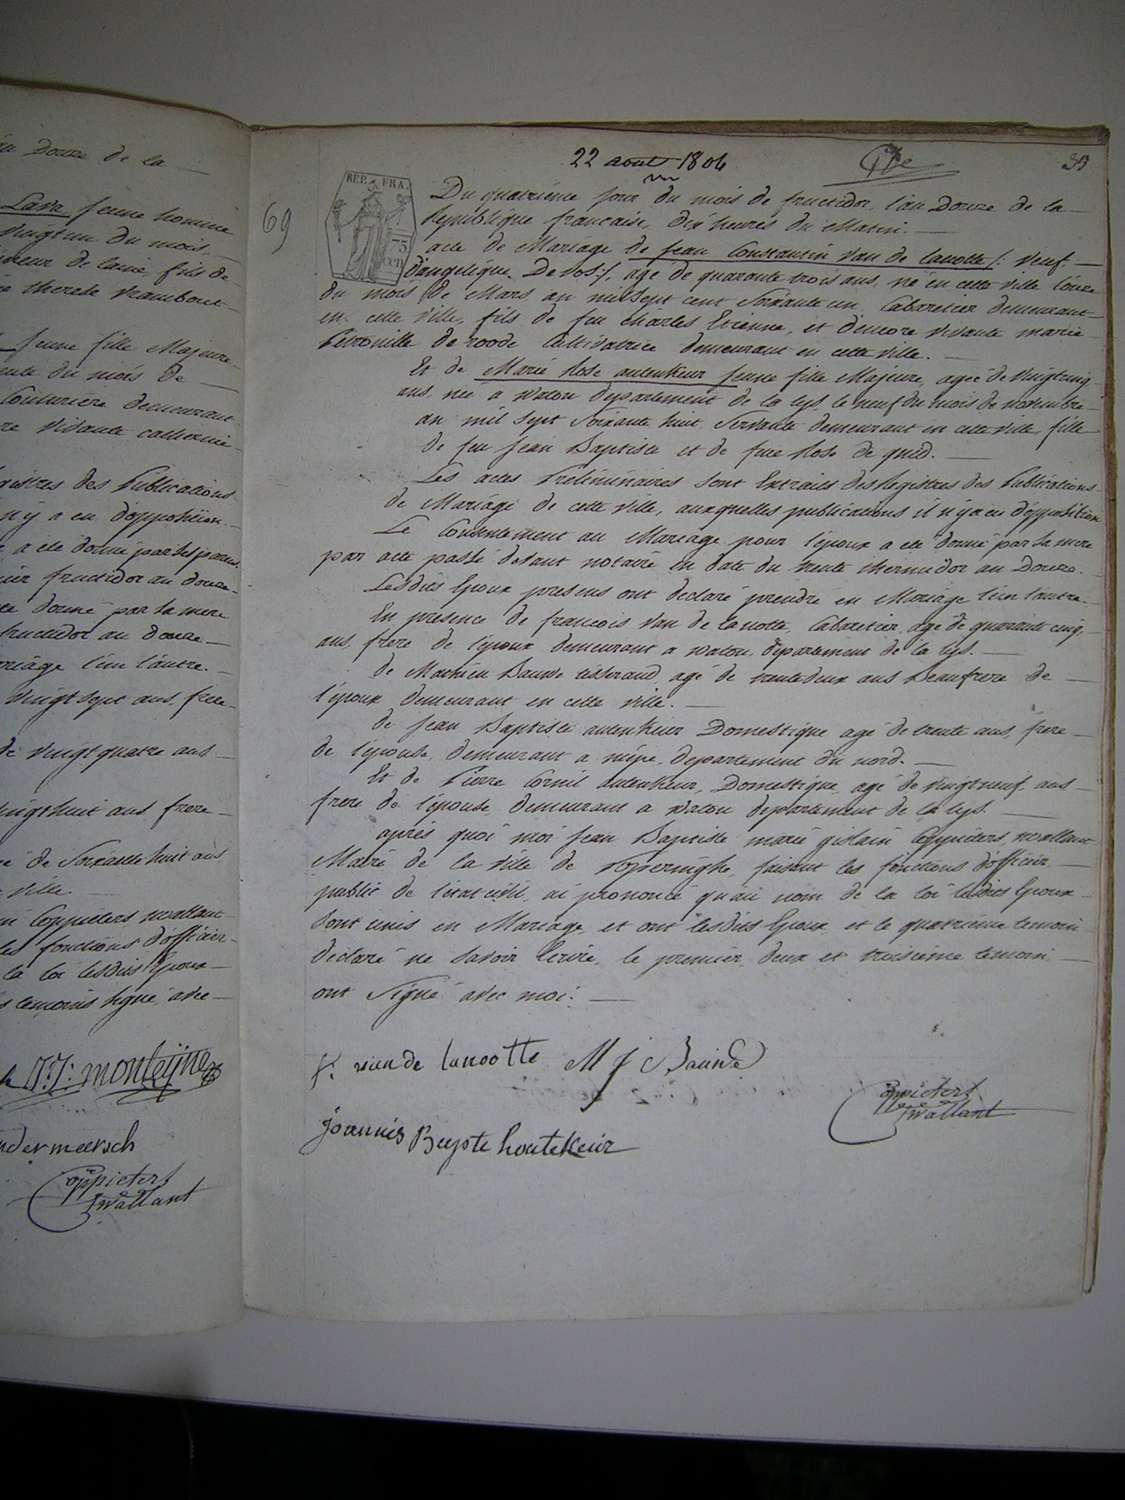 Douze de la
Lava jeune homme
vingt un du mois
de laine, fils de
therese
jeune fille Majeure
du mois de
Couturière demeurant
vivante catherine
des Publications
n'y a eu d'opposition.
a été donné par les parens
fructidor an douze
donné par la mere
fructidor an douze
mariage l'un l'autre.
vingt sept ans frere
de vingt quatre ans
vingt huit ans frere
de Soixante huit ans
ville.
Coppieters wallant
les fonctions d'officier
la loi lesdits Epoux
temoins signé avec
monteijne
ndermeersch
Coppieters
wallant
22 aout 1804
39
69
REP. FRA.
75
CEN
Du quatrième jour du mois de fructidor, l'an Douze de la
République francaise, dix heures du Matin.
acte de Mariage de Jean Constantin Van de lanotte /: veuf
d'angelique De vos :/, agé de quarante trois ans, né en cette ville l'onze
du mois de Mars an mil Sept cent Soixante un, Cabaretier demeurant
en cette ville, fils de feu Charles Etienne, et d'encore vivante marie
Petronille de roode Cultivatrice demeurant en cette ville.
Et de Marie Rose autenkeur jeune fille Majeure, agée de vingt cinq
ans, née a watou departement de la lys, le neuf du mois de novembre
an mil Sept Soixante huit, Servante demeurant en cette ville, fille
de feu Jean Baptiste et de feue Rose de quid.
Les actes Préliminaires sont Extraits des Registres des Publications
de Mariage de cette ville, auxquelles publications il n'y a eu d'opposition
Le Consentement au Mariage pour l'epoux a été donné par sa mere
par acte passé devant notaire en date du trente thermidor an Douze.
Lesdits Epoux presens ont déclaré prendre en Mariage l'un l'autre.
En présence de francois Van de lanotte, Cabaretier, agé de quarante cinq
ans, frere de l'epoux demeurant a watou, departement de la lys.
de Mathieu Bauw tisserand, agé de trente deux ans Beaufrere de
l'epoux demeurant en cette ville.
de Jean Baptiste autenkeur Domestique agé de trente ans, frere
de l'epouse, demeurant a departement du nord.
Et de Pierre Cornil autenkeur, Domestique, agé de vingt neuf ans
frere de l'epouse demeurant a watou departement de la lys.
après quoi moi Jean Baptiste marie gislain Coppieters wallant
Maire de la ville de Poperinghe, faisant les fonctions d'officier
public de l'etat civil, ai prononcé qu'au nom de la loi lesdits Epoux
sont unis en Mariage, et ont lesdits Epoux et le quatrieme temoin
declaré ne savoir Ecrire, le premier, deux et troisieme temoin
ont Signé avec moi.
f. van de lanootte M J Bauwd
Joannis Bapte houtekeur
Coppieters
wallant